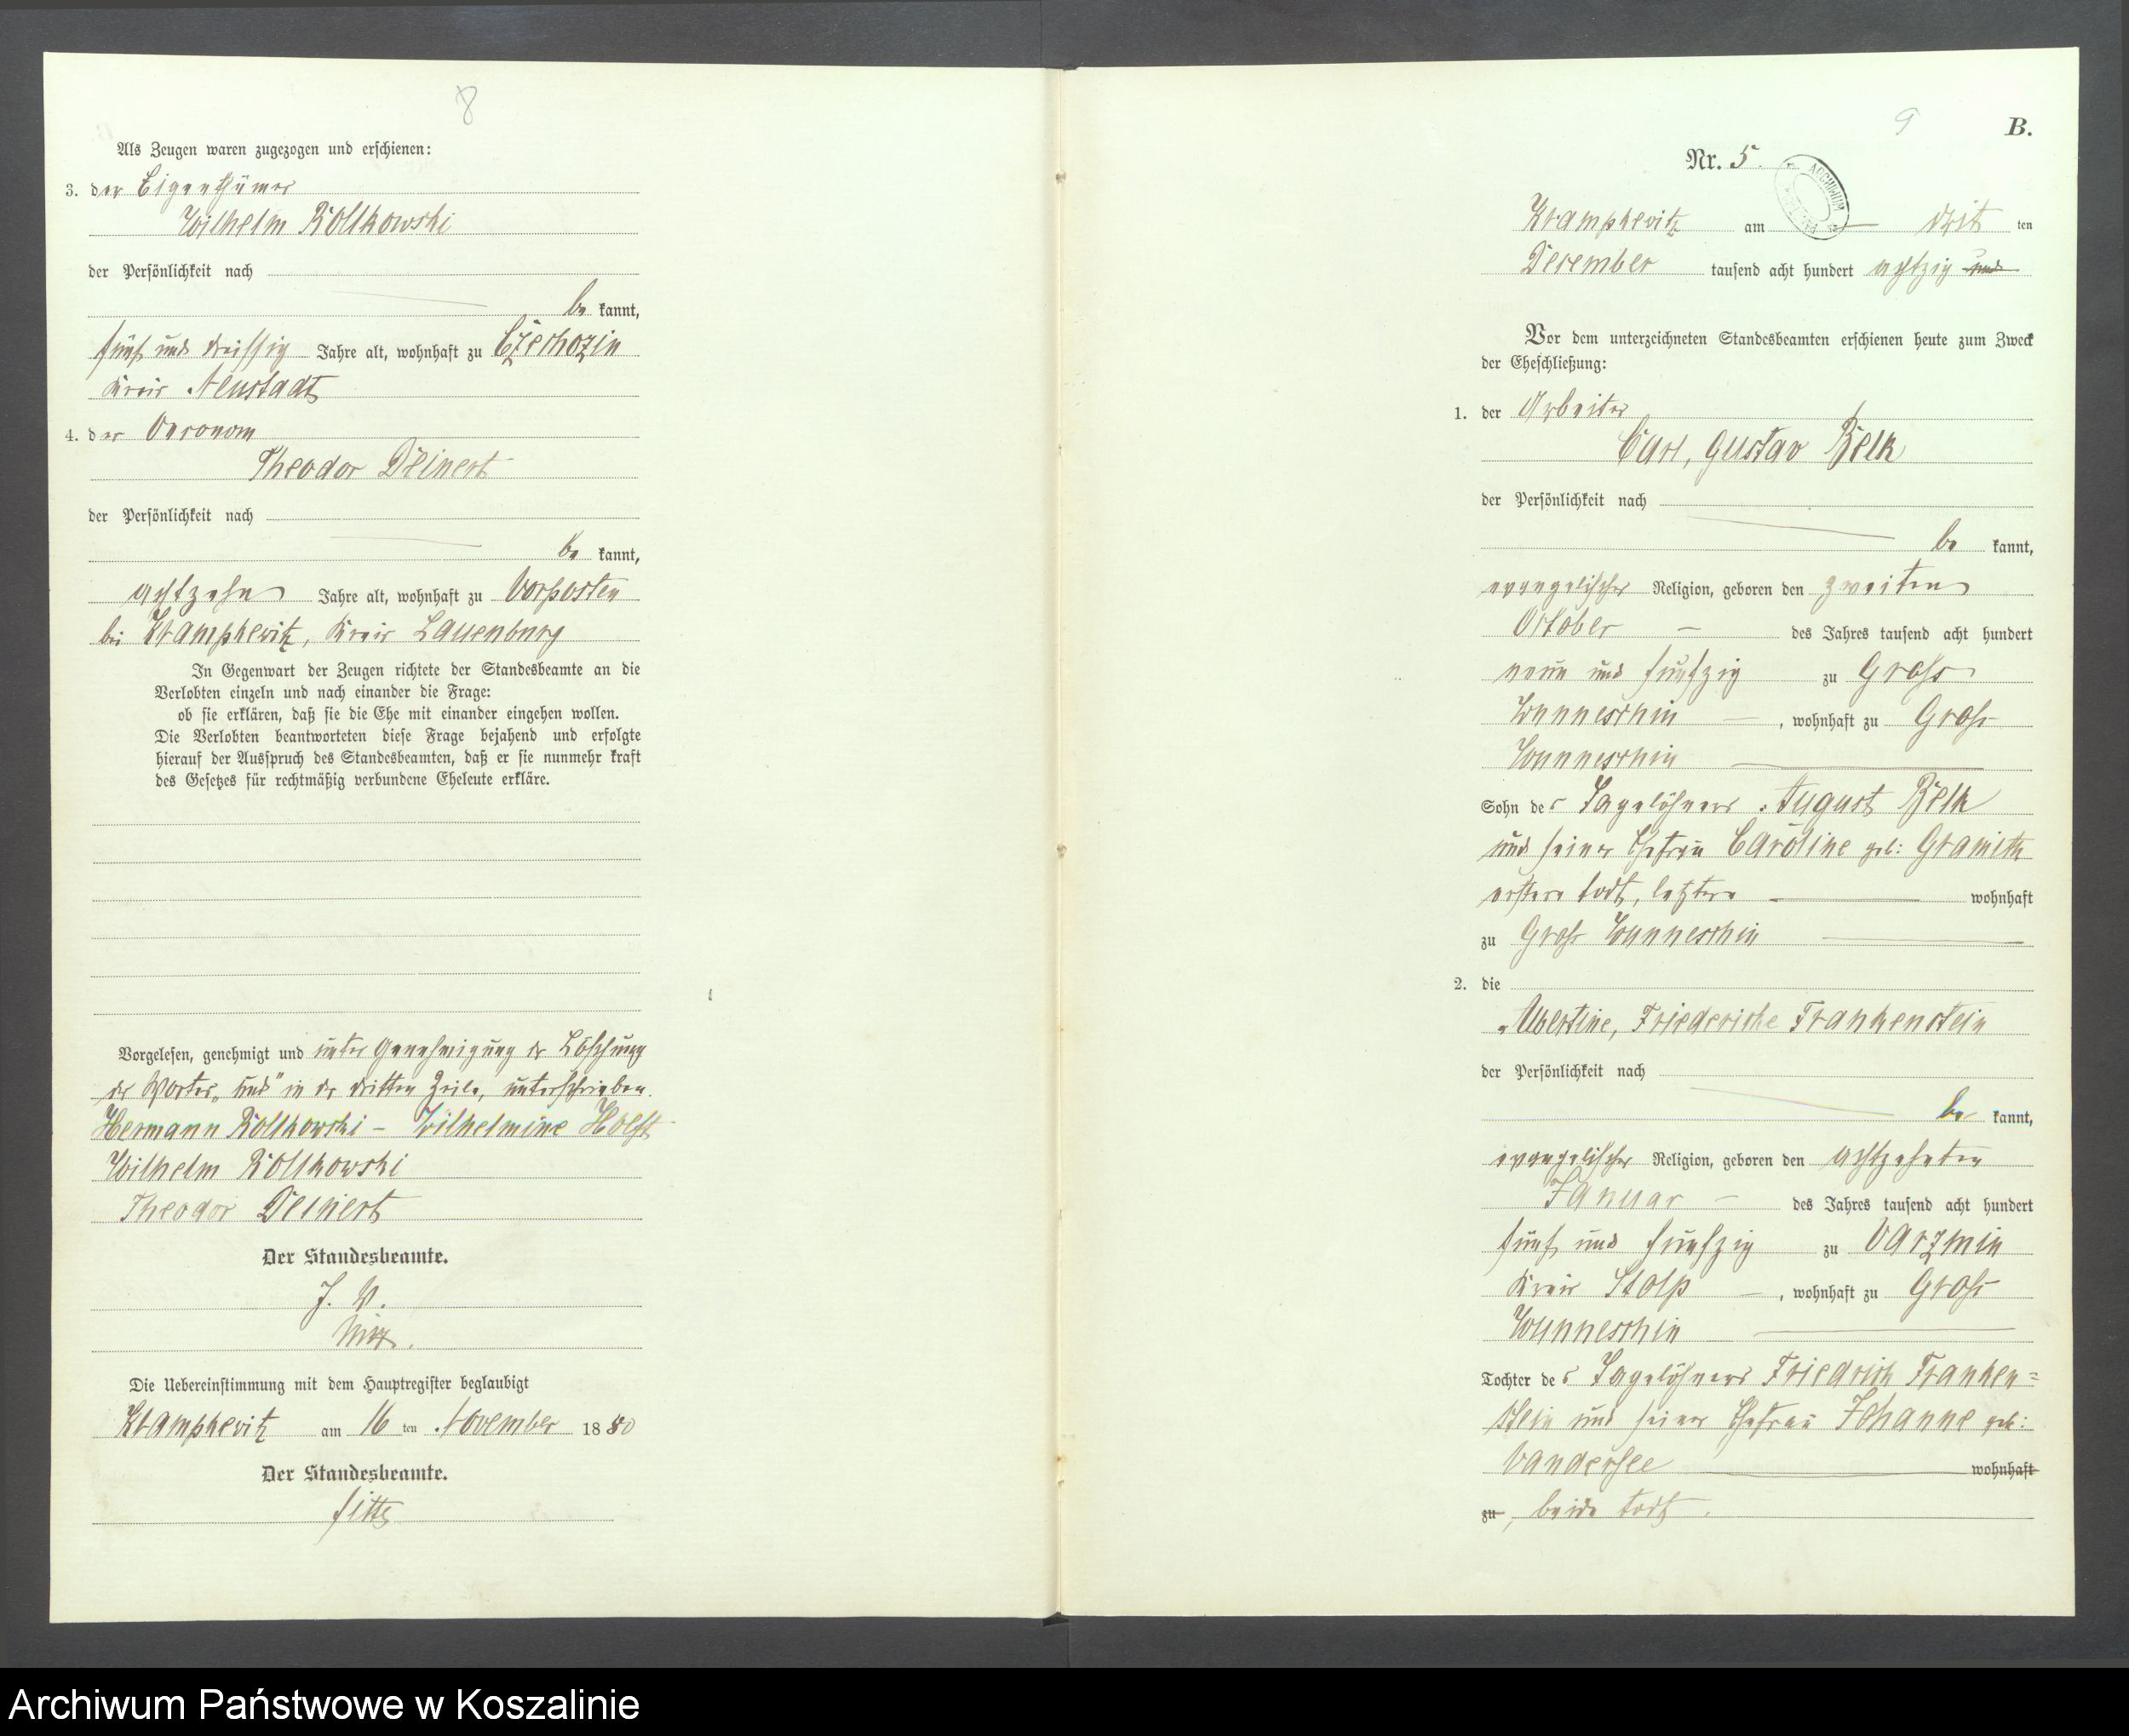 8
Als Zeugen waren zugezogen und erschienen:
3. der Eigenthümer
Wilhelm Rollkowski
der Persönlichkeit nach
be kannt,
fünf und dreissig Jahre alt, wohnhaft zu Czechozin
Kreis Neustadt
4. der Oeconom
Theodor Deinert
der Persönlichkeit nach
be kannt,
achtzehn Jahre alt, wohnhaft zu Vorposten
bei Krampkewitz, Kreis Lauenburg
In Gegenwart der Zeugen richtete der Standesbeamte an die
Verlobten einzeln und nach einander die Frage:
ob sie erklären, daß sie die Ehe mit einander eingehen wollen.
Die Verlobten beantworteten diese Frage bejahend und erfolgte
hierauf der Ausspruch des Standesbeamten, daß er sie nunmehr kraft
des Gesetzes für rechtmäßig verbundene Eheleute erkläre.
Vorgelesen, genehmigt und unter Genehmigung der Löschung
des Wortes „und" in der dritten Zeile, unterschrieben.
Hermann Rollkowski – Wilhelmine Holst
Wilhelm Rollkowski
Theodor Deinert
Der Standesbeamte.
J. V.
Die Uebereinstimmung mit dem Hauptregister beglaubigt
Krampkewitz am 16 ten November 1880
Der Standesbeamte.
9
B.
Nr. 5.
ARCHIWUM
Krampkewitz am drit ten
December tausend acht hundert achtzig und
Vor dem unterzeichneten Standesbeamten erschienen heute zum Zweck
der Eheschließung:
1. der Arbeiter
Carl, Gustav Belk
der Persönlichkeit nach
be kannt,
evangelischer Religion, geboren den zweiten
October – des Jahres tausend acht hundert
neun und funfzig zu Gross
Wunneschin – , wohnhaft zu Gross
Wunneschin
Sohn des Tagelöhners August Belk
und seiner Ehefrau Caroline geb: Gramitz
erstere todt, letztere wohnhaft
zu Gross Wunneschin
2. die
Albertine, Friedericke Frankenstein
der Persönlichkeit nach
be kannt,
evangelischer Religion, geboren den achtzehnten
Januar – des Jahres tausend acht hundert
fünf und funfzig zu Varzmin
Kreis Stolp – , wohnhaft zu Gross
Wunneschin
Tochter des Tagelöhners Friedrich Franken=
stein und seiner Ehefrau Johanne geb:
Vandersee wohnhaft
zu, beide todt.
Archiwum Państwowe w Koszalinie